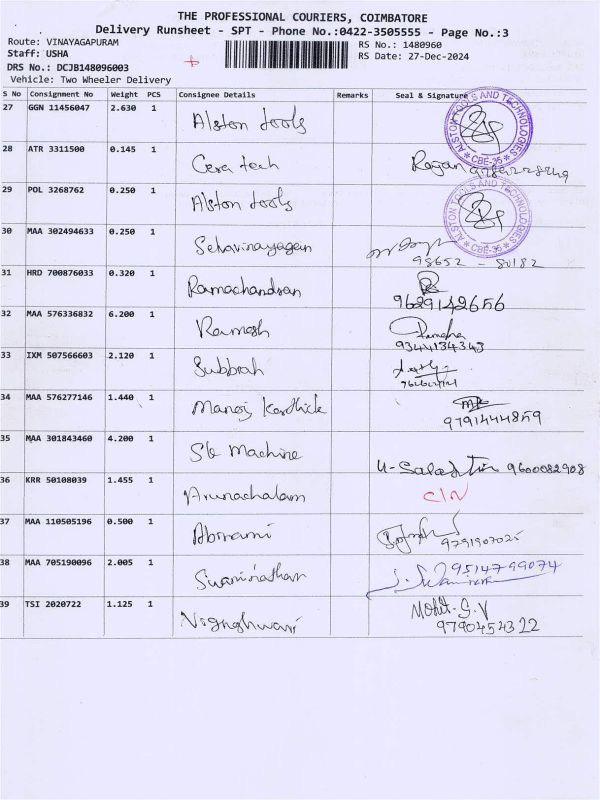 THE PROFESSIONAL COURIERS, COIMBATORE
Delivery Runsheet - SPT - Phone No.:0422-3505555 - Page No.:3
Route: VINAYAGAPURAM
Staff: USHA
DRS No.: DCJB148096003
Vehicle: Two Wheeler Delivery
RS No.: 1480960
RS Date: 27-Dec-2024
S No Consignment No Weight PCS Consignee Details Remarks Seal & Signature
27 GGN 11456047 2.630 1 Alston tools ALSTON TOOLS AND TECHNOLOGIES * CBE-35 *
28 ATR 3311500 0.145 1 Cera tech Rajan
29 POL 3268762 0.250 1 Alston tools ALSTON TOOLS AND TECHNOLOGIES * CBE-35 *
30 MAA 302494633 0.250 1 98652 - 80182
31 HRD 700876033 0.320 1 Ramachandran 9629142656
32 MAA 576336832 6.200 1 Ramesh 9344134343
33 IXM 507566603 2.120 1 Subbiah
34 MAA 576277146 1.440 1 Manoj Karthick 9791444859
35 MAA 301843460 4.200 1 Sk Machine 9600082908
36 KRR 50108039 1.455 1 Arunachalam C/N
37 MAA 110505196 0.500 1 Abirami 9791907025
38 MAA 705190096 2.005 1 Swaminathan 9514799074
39 TSI 2020722 1.125 1 Mohit. S.V
9790454322